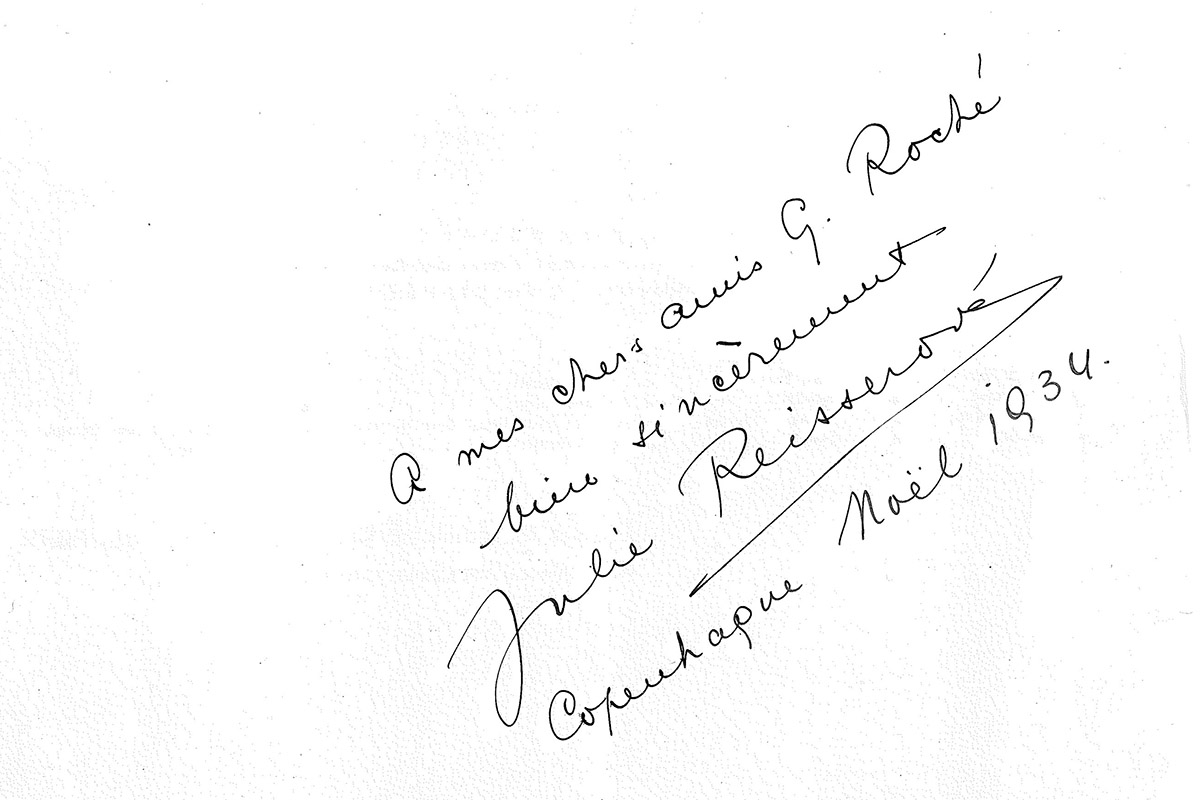 A mes chers amis G. Roché
bien sincèrement
Julie Reisserová
Copenhague Noël 1934.